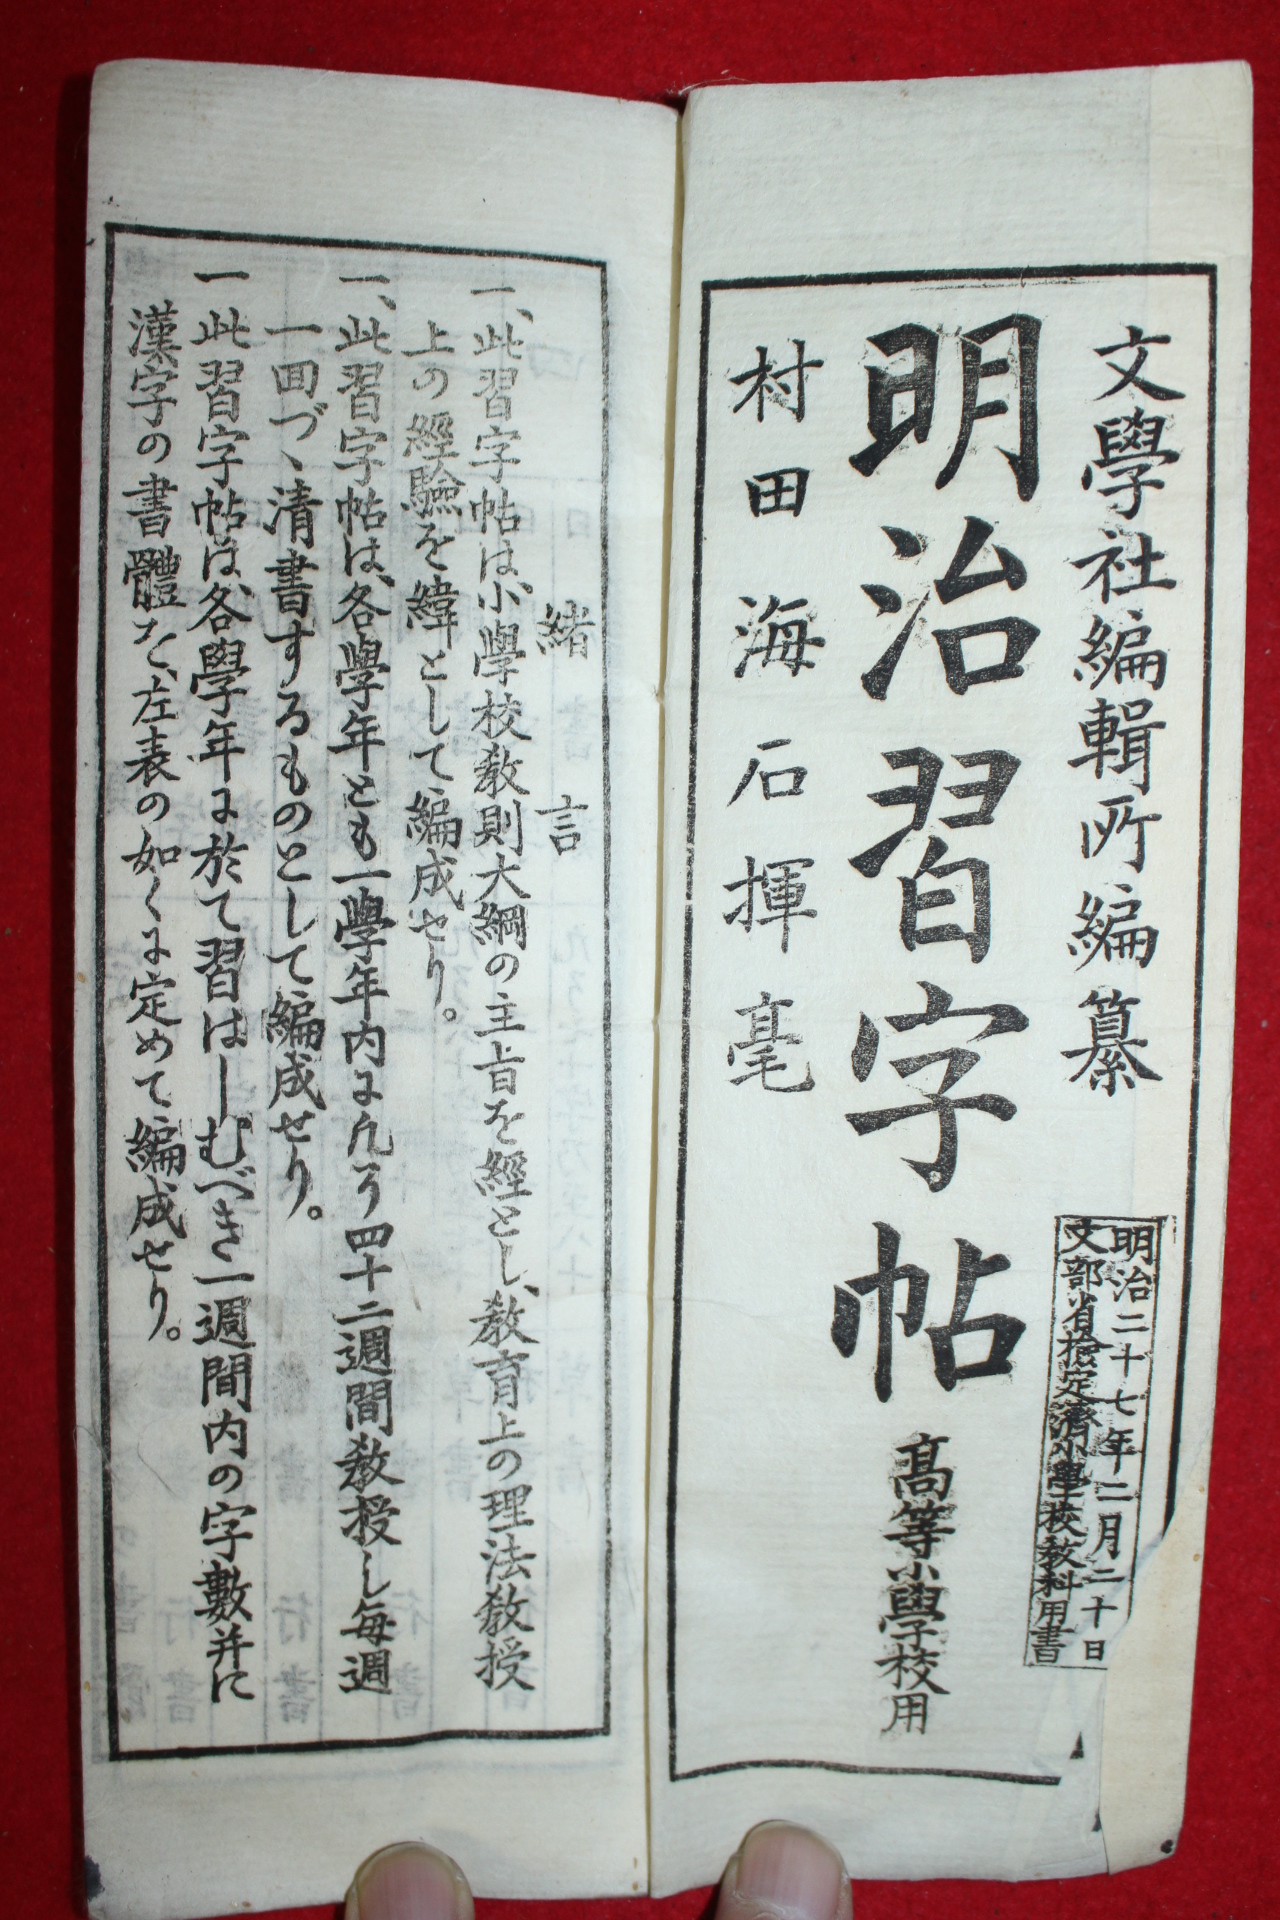 文學社編輯所編纂
明治二十七年二月二十日
文部省檢定濟小學校教科用書
明治習字帖 高等小學校用
村田海石揮毫
緒言
一、此習字帖は、小學校教則大綱の主旨を經とし、教育上の理法教授
上の經驗を緯として編成せり。
一、此習字帖は、各學年とも一學年内に凡そ四十二週間教授し毎週
一回づゝ清書するものとして編成せり。
一此習字帖は、各學年に於て習はしむべき一週間内の字數并に
漢字の書體を、左表の如くに定めて編成せり。